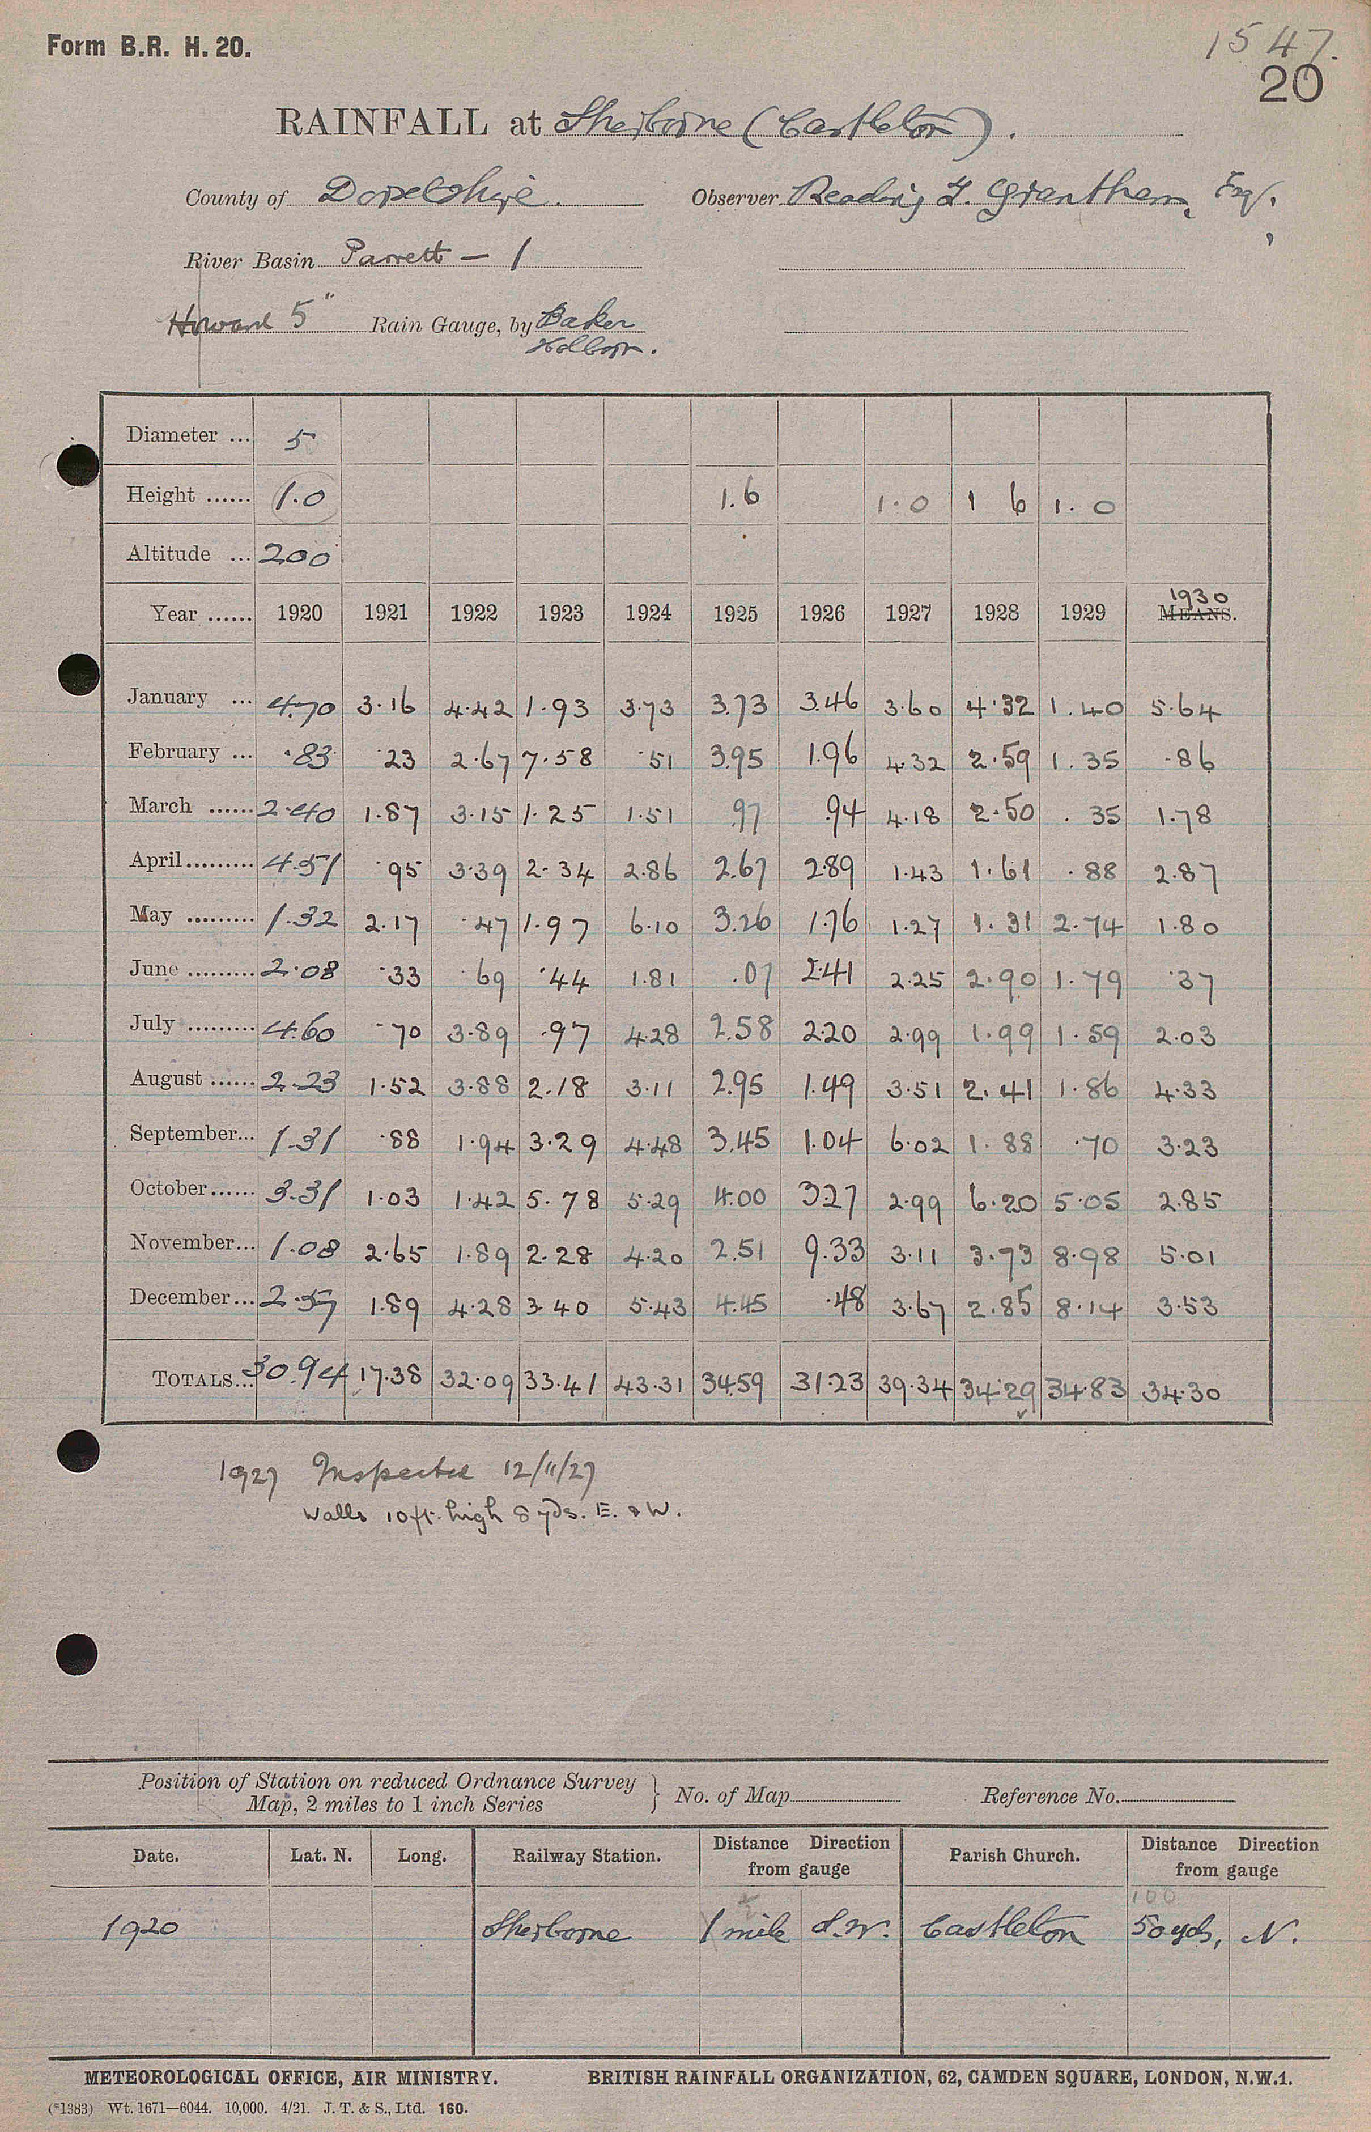 Form B.R. H. 20.
1547.
20
RAINFALL at Sherborne (Castleton).
County of Dorsetshire. Observer Reading G. Grantham, Esq.
River Basin Parrett — 1
Howard 5" Rain Gauge, by Baker
Holborn.
Diameter ... 5
Height ...... 1.0 1.6 1.0 1 6 1.0
Altitude ... 200
Year ...... 1920 1921 1922 1923 1924 1925 1926 1927 1928 1929 1930 MEANS.
January ... 4.70 3.16 4.42 1.93 3.73 3.73 3.46 3.60 4.32 1.40 5.64
February ... .83 .23 2.67 7.58 .51 3.95 1.96 4.32 2.59 1.35 .86
March ...... 2.40 1.87 3.15 1.25 1.51 .97 .94 4.18 2.50 .35 1.78
April ......... 4.51 .95 3.39 2.34 2.86 2.67 2.89 1.43 1.61 .88 2.87
May ......... 1.32 2.17 .47 1.97 6.10 3.26 1.76 1.27 1.31 2.74 1.80
June ......... 2.08 .33 .69 .44 1.81 .07 2.41 2.25 2.90 1.79 .37
July ......... 4.60 .70 3.89 .97 4.28 2.58 2.20 2.99 1.99 1.59 2.03
August ...... 2.23 1.52 3.88 2.18 3.11 2.95 1.49 3.51 2.41 1.86 4.33
September... 1.31 .88 1.94 3.29 4.48 3.45 1.04 6.02 1.88 .70 3.23
October ...... 3.31 1.03 1.42 5.78 5.29 4.00 3.27 2.99 6.20 5.05 2.85
November... 1.08 2.65 1.89 2.28 4.20 2.51 9.33 3.11 3.73 8.98 5.01
December... 2.57 1.89 4.28 3.40 5.43 4.45 .48 3.67 2.85 8.14 3.53
TOTALS... 30.94 17.38 32.09 33.41 43.31 34.59 31.23 39.34 34.29 34.83 34.30
1927 Inspected 12/11/27
Walls 10 ft. high 8 yds. E. & W.
Position of Station on reduced Ordnance Survey
Map, 2 miles to 1 inch Series } No. of Map Reference No.
Date. Lat. N. Long. Railway Station. Distance Direction from gauge Parish Church. Distance Direction from gauge
100
1920 Sherborne 1 mile S.W. Castleton 50 yds, N.
METEOROLOGICAL OFFICE, AIR MINISTRY. BRITISH RAINFALL ORGANIZATION, 62, CAMDEN SQUARE, LONDON, N.W.1.
(*1383) Wt. 1671—6044. 10,000. 4/21. J. T. & S., Ltd. 160.